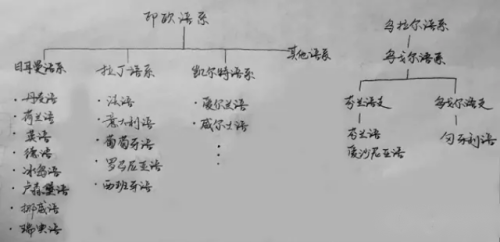 印欧语系
日耳曼语系
· 丹麦语
· 荷兰语
· 英语
· 德语
· 冰岛语
· 卢森堡语
· 挪威语
· 瑞典语
拉丁语系
· 法语
· 意大利语
· 葡萄牙语
· 罗马尼亚语
· 西班牙语
凯尔特语系
· 爱尔兰语
· 威尔士语
其他语系
乌拉尔语系
乌戈尔语系
芬兰语支
芬兰语
爱沙尼亚语
乌戈尔语支
匈牙利语